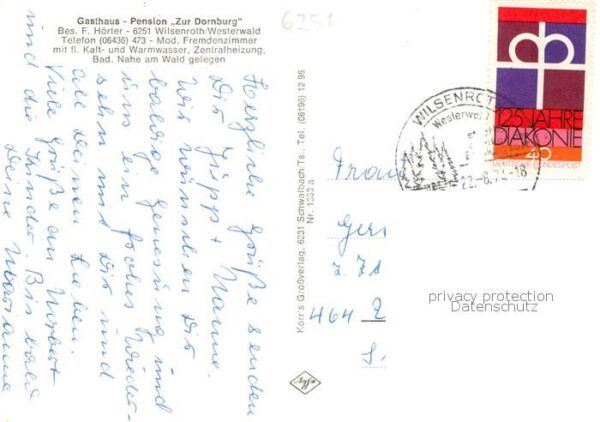 Gasthaus - Pension „Zur Dornburg"
Bes. F. Hörter - 6251 Wilsenroth/Westerwald
Telefon (06436) 473 - Mod. Fremdenzimmer
mit fl. Kalt- und Warmwasser, Zentralheizung,
Bad. Nahe am Wald gelegen
6251
Herzliche Grüße senden
Dir
Wir wünschen Dir
baldige Genesung und
ein frohes Wieder-
sehn mit Dir und
all Deinen Lieben.
Viele Grüße an Norbert
und die Kinder Bis bald
Deine Marianne
Korr's Großverlag, 6231 Schwalbach/Ts., Tel. (06196) 12 96
Nr. 1333 a
WILSENROTH
Westerwal
22.-8.7 -18
125 JAHRE
DIAKONIE
40
DEUTSCHE BUNDESPOST
Frau
z. Zt
464
privacy protection
Datenschutz